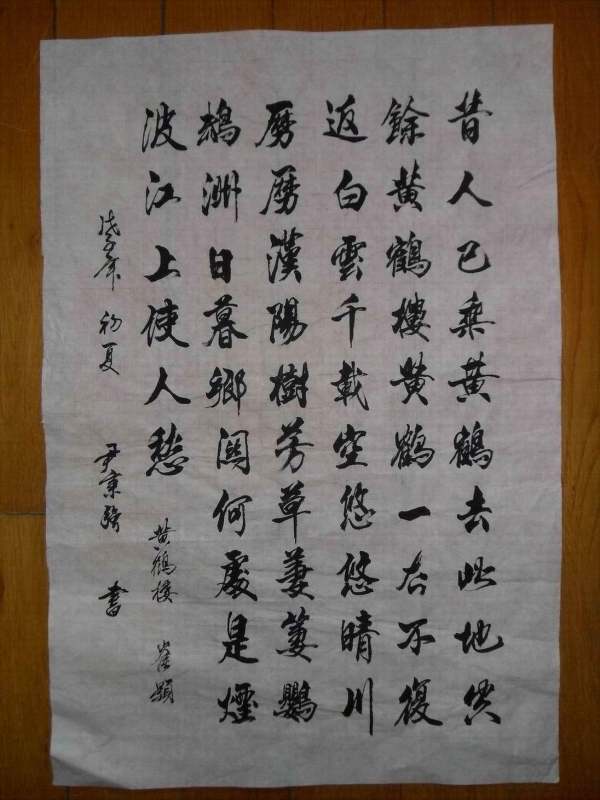 昔人已乘黄鶴去此地空
餘黄鶴樓黄鶴一去不復
返白雲千載空悠悠晴川
歷歷漢陽樹芳草萋萋鸚
鵡洲日暮鄉関何處是煙
波江上使人愁
黄鶴樓 崔顥
戊子年 初夏 尹 書